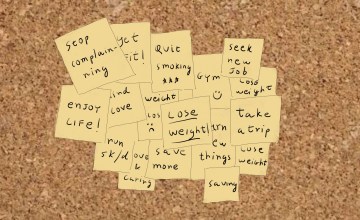 stop
complain-
ning
get
fit!
Quit
smoking
***
seek
new
Job
GYM
Lose
weight
enjoy
LIFE!
find
love
weight
los
LOSE
weight
take
a trip
run
5k/d
save
more
things
Lose
weight
caring
saving